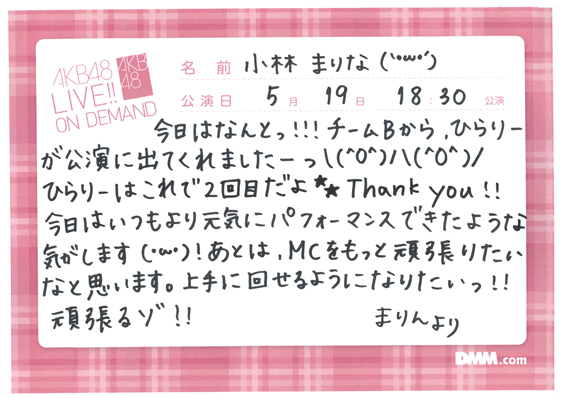 AKB48
LIVE!!
ON DEMAND
AKB
48
名 前 小林 まりな (`・ω・´)
公演日 5月 19日 18:30 公演
今日はなんとっ!!!チームBから、ひらりー
が公演に出てくれましたーっ\(^O^)/\(^O^)/
ひらりーはこれで2回目だよ★★ Thank you!!
今日はいつもより元気にパフォーマンスできたような
気がします(・ω・)!あとは、MCをもっと頑張りたい
なと思います。上手に回せるようになりたいっ!!
頑張るゾ!! まりんより
DMM.com